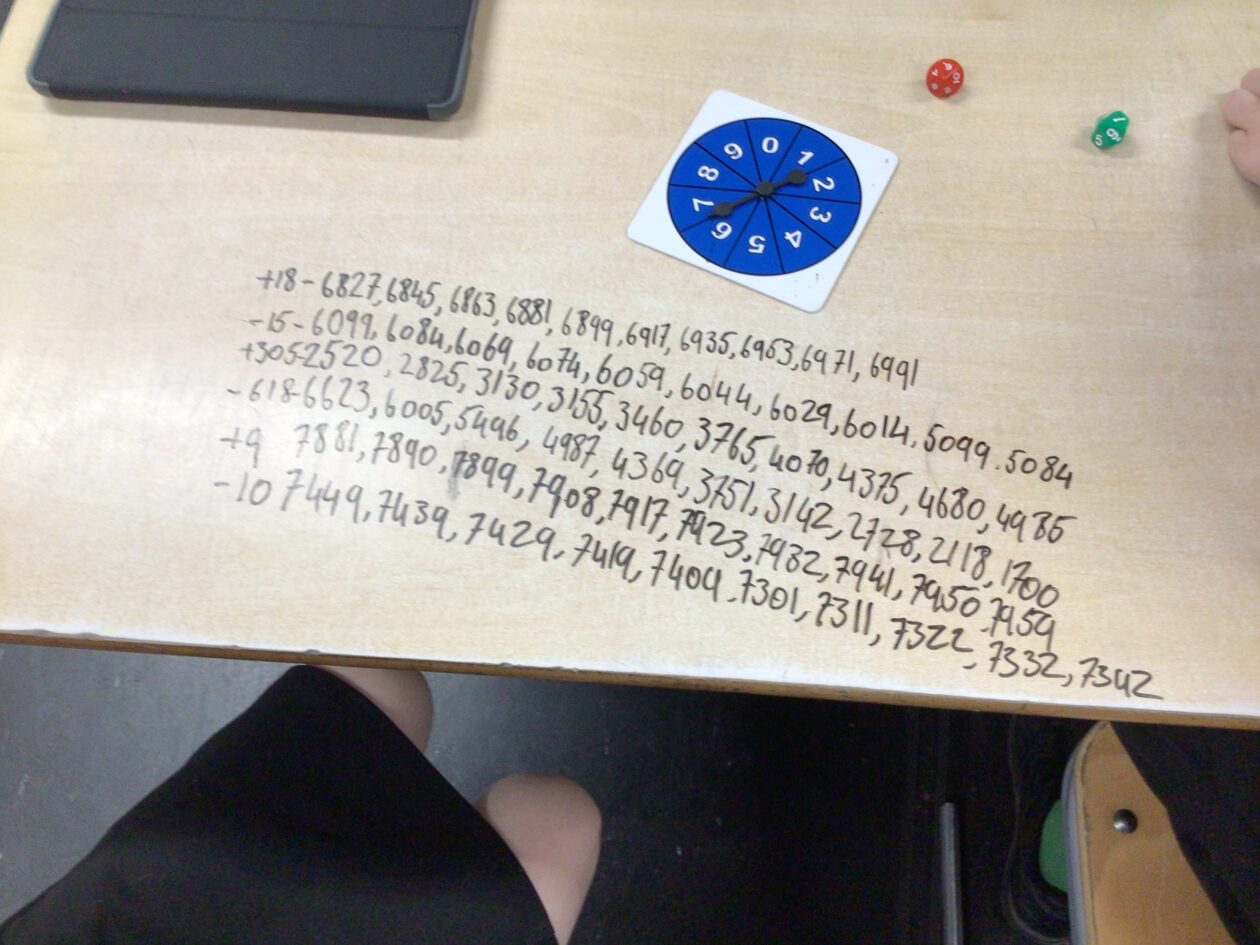 0 1 2 3 4 5 6 7 8 9
+18 - 6827, 6845, 6863, 6881, 6899, 6917, 6935, 6953, 6971, 6991
-15 - 6099, 6084, 6069, 6074, 6059, 6044, 6029, 6014, 5099. 5084
+305-2520, 2825, 3130, 3155, 3460, 3765, 4070, 4375, 4680, 4985
-618-6623, 6005, 5496, 4987, 4369, 3751, 3142, 2728, 2118, 1700
+9 7881, 7890, 7899, 7908, 7917, 7923, 7932, 7941, 7950. 7959
-10 7449, 7439, 7429, 7419, 7409. 7301, 7311, 7322, 7332, 7342